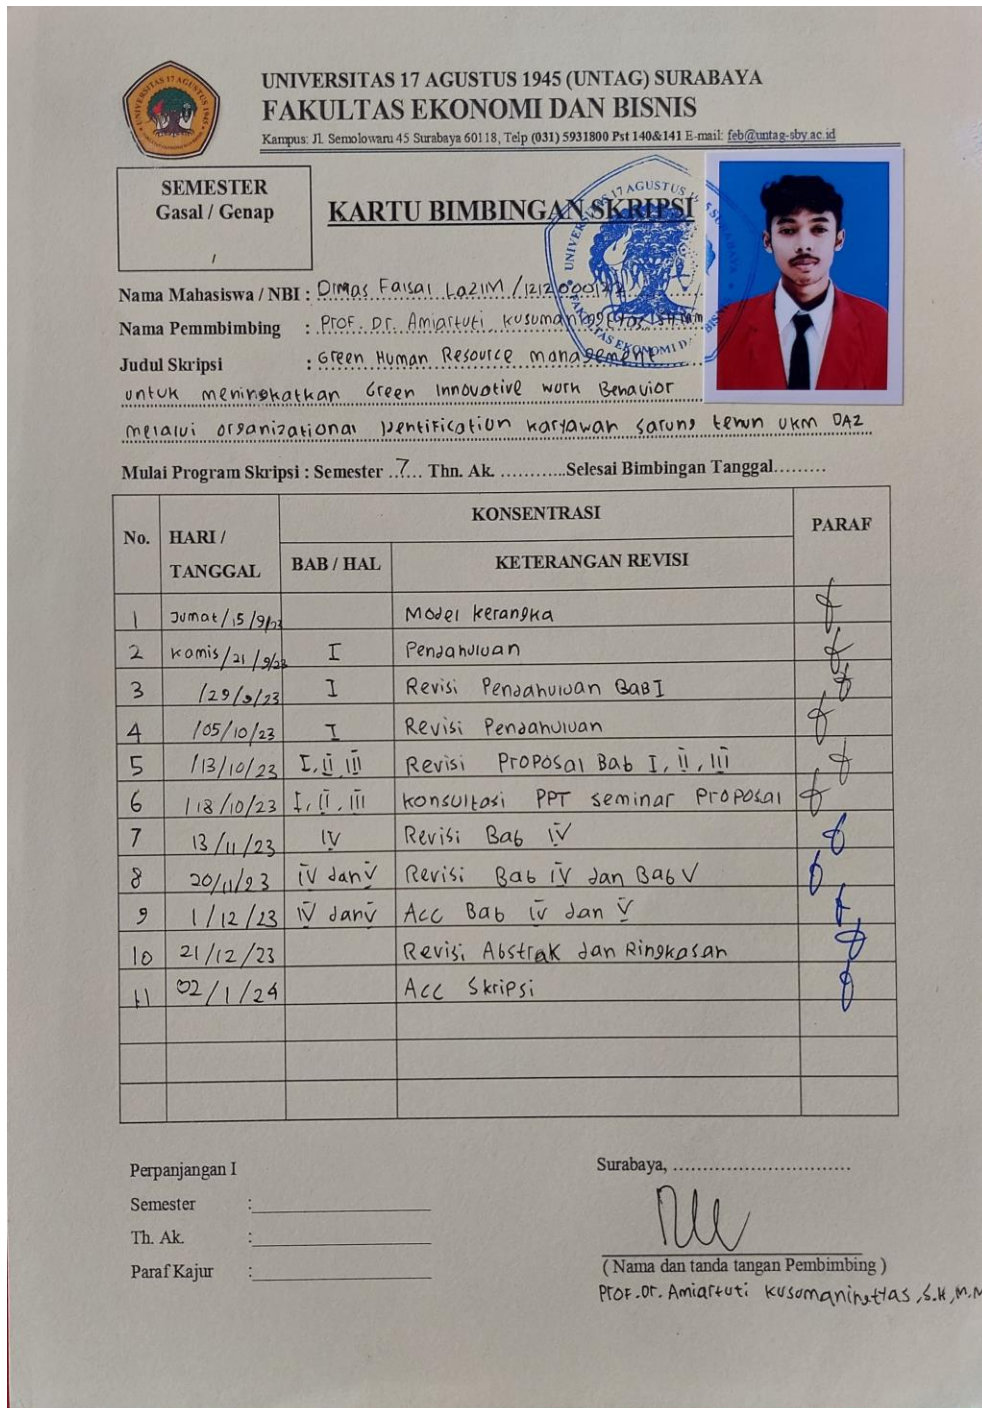 UNIVERSITAS 17 AGUSTUS 1945 (UNTAG) SURABAYA
FAKULTAS EKONOMI DAN BISNIS
Kampus: Jl. Semolowaru 45 Surabaya 60118, Telp (031) 5931800 Pst 140&141 E-mail: feb@untag-sby.ac.id
SEMESTER
Gasal / Genap
/
KARTU BIMBINGAN SKRIPSI
Nama Mahasiswa / NBI : Dimas Faisal Lazim /
Nama Pemmbimbing : Prof. Dr. Amiartuti
Judul Skripsi : Green Human Resource management
untuk meningkatkan Green Innovative work Behavior
melalui organizational Identification karyawan sarung tenun UKM DAZ
Mulai Program Skripsi : Semester ..7... Thn. Ak. ............Selesai Bimbingan Tanggal.........
No. HARI / TANGGAL KONSENTRASI PARAF
BAB / HAL KETERANGAN REVISI
1 Jumat/15/9/23 Model kerangka
2 Kamis/21/9/23 I Pendahuluan
3 /29/9/23 I Revisi Pendahuluan Bab I
4 /05/10/23 I Revisi Pendahuluan
5 /13/10/23 I, II III Revisi Proposal Bab I, II, III
6 /18/10/23 I, II, III konsultasi PPT seminar Proposal
7 13/11/23 IV Revisi Bab IV
8 20/11/23 IV dan V Revisi Bab IV dan Bab V
9 1/12/23 IV dan V Acc Bab IV dan V
10 21/12/23 Revisi Abstrak dan Ringkasan
11 02/1/24 Acc Skripsi
Perpanjangan I
Semester :
Th. Ak. :
Paraf Kajur :
Surabaya, ..............................
( Nama dan tanda tangan Pembimbing )
Prof. Dr. Amiartuti Kusumaningtyas, S.H, M.M